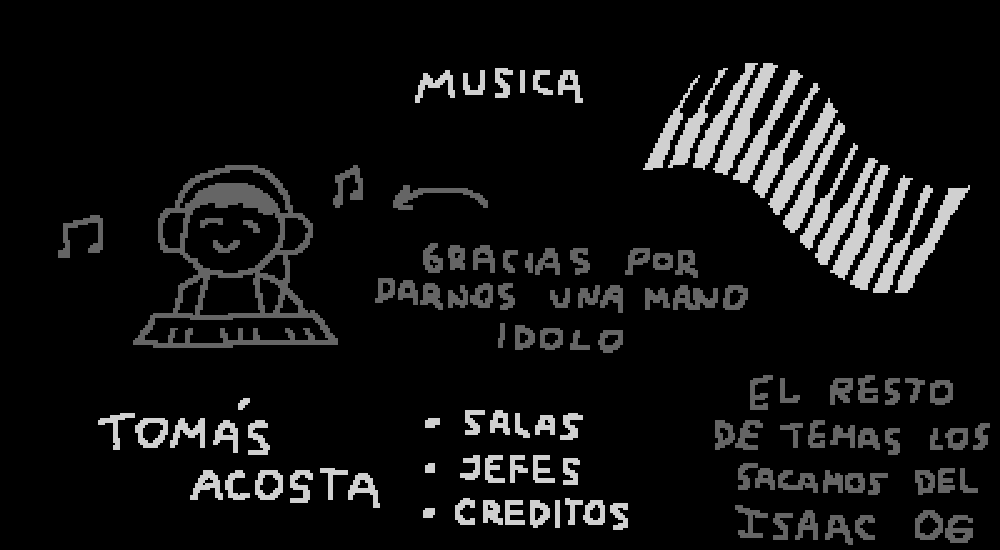 MUSICA
GRACIAS POR
DARNOS UNA MANO
IDOLO
TOMÁS
ACOSTA
• SALAS
• JEFES
• CREDITOS
EL RESTO
DE TEMAS LOS
SACAMOS DEL
ISAAC OG